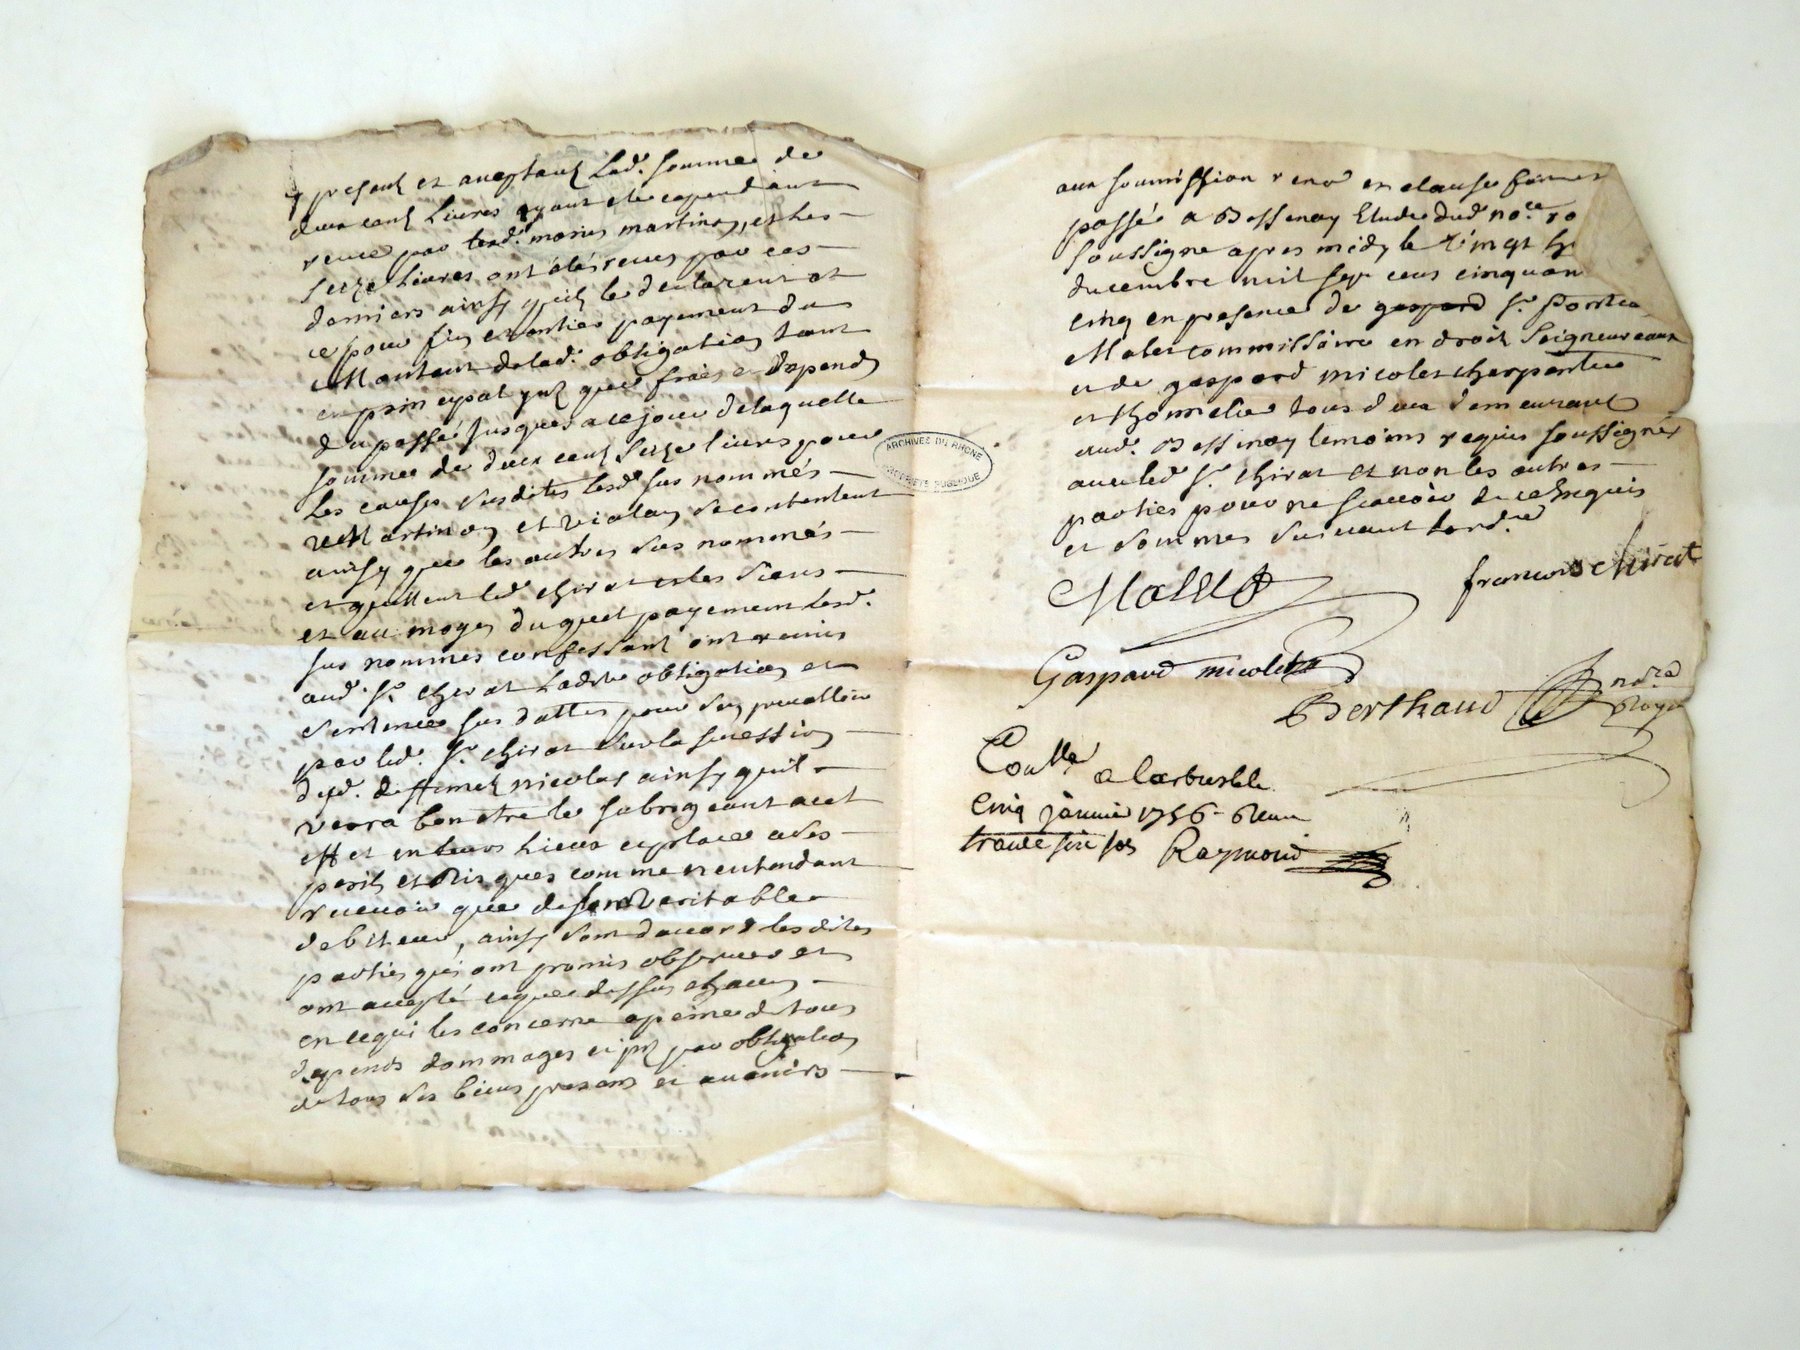 present et acceptant Lad. somme de
deux cent Livres ayant ete cependant
receue par lesd. maries martinon, et Les
seize Livres ont étés receus par ces
derniers ainsy quils le declarent et
ce pour fin et entier payement du
Montant de lad. obligation tant
en principal que frais et depends
du passé jusques a ce jour de laquelle
somme de deux cent seize livres pour
les causes susdites lesd. sus nommés
Martinon et violay se contentent
ainsy que les autres sus nommés
et quittent led. chirat et les siens
et au moyen du quel payement lesd.
sus nommes confessant ont remis
aud. Sr. chirat Ladite obligation et
sentence sus dattés pour s'en prevalloir
par led. Sr. chirat sur la succession
dud. deffunct nicolas ainsy quil
verra bon etre le subrogeant a cet
effet en leurs Lieux et place a ses
perils et Risques comme n'entendant
recevoir que de son veritable
debiteur, ainsy sont d'accord lesdites
parties qui ont promis observer et
ont accepté ce que dessus chacun
en ce qui les concerne a peine de tous
depends dommages par obligation
de tous ses biens presens et avenirs
aux soumission et clause
passé a Bessenay Etude dud. no.re ro
soussigne apres midy le vingt
decembre mil sept cens cinquan
cinq en presence de gaspard Sr.
Malet commissaire en droit Seigneureaux
et de gaspard micolet charpentier
et thomelier tous deux demeurant
aud. Bessenay temoins requis soussignés
avec led. Sr. chirat et non les autres
parties pour ne scavoir de ce Enquis
et sommes suivant lord.ce
Mallet francois chirat
Gaspard micolet
Berthaud no.re
Royal
Con.lle a larbresle
Cinq janvier 1756 - Reçu
trante six sols Raymond
ARCHIVES DU RHONE
PROPRIETE PUBLIQUE